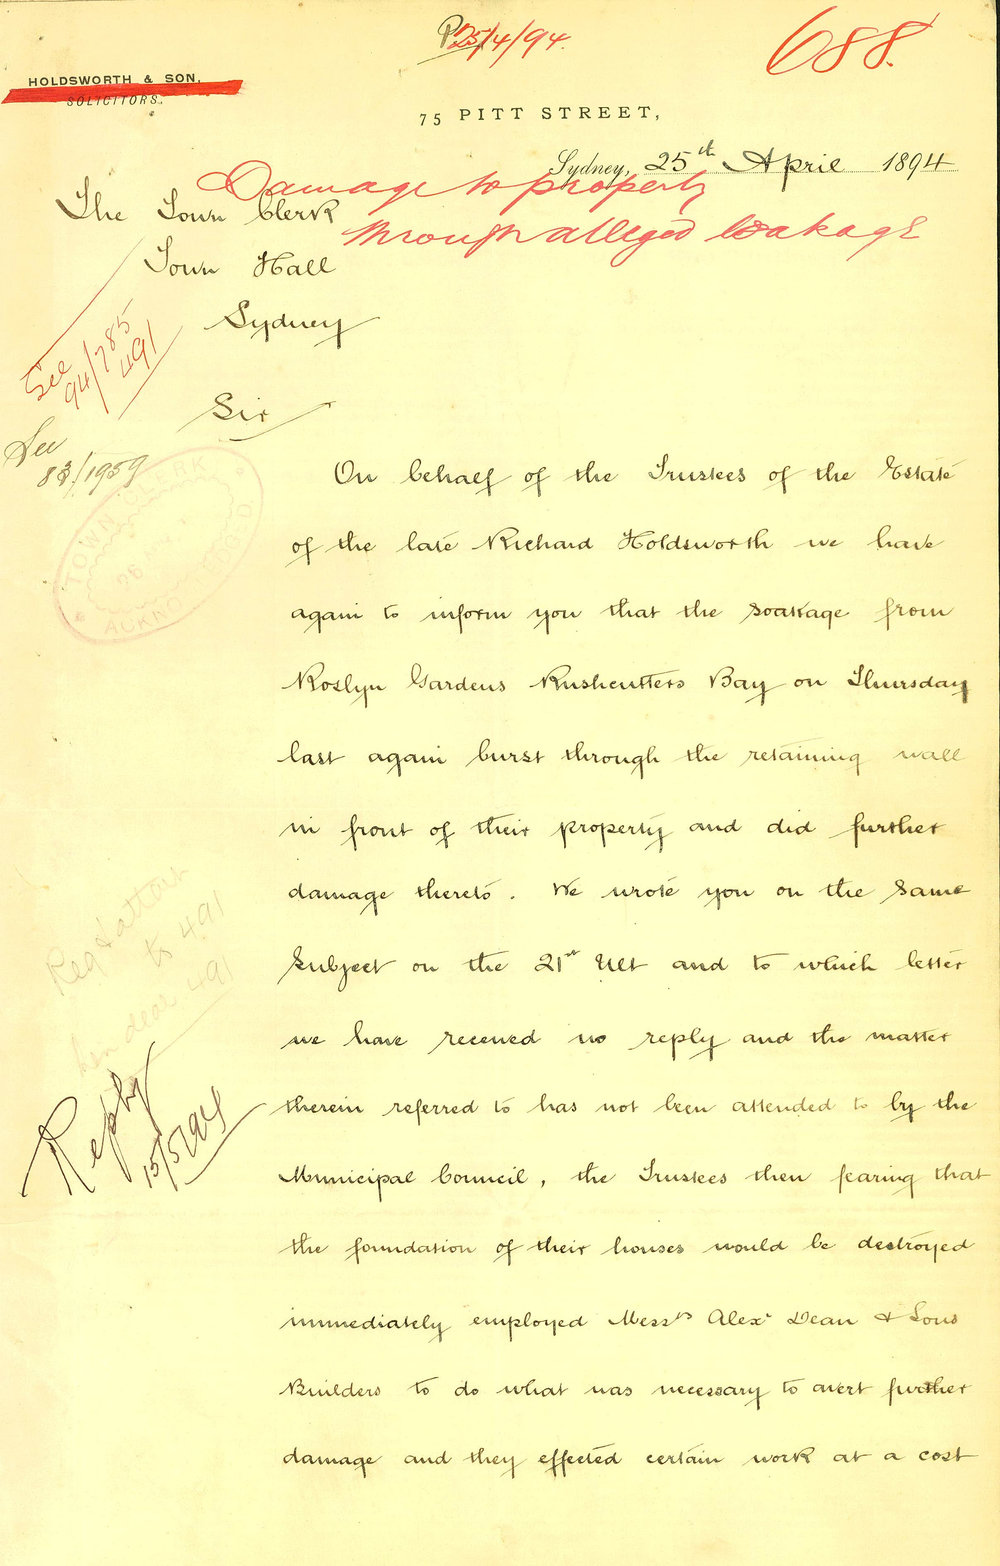 25/4/94.
688.
HOLDSWORTH & SON,
SOLICITORS.
75 PITT STREET,
Sydney, 25th April 1894
Damage to property
through alleged leakage
The Town Clerk
Town Hall
Sydney
See
94/785
491
See
83/1959
Sir
TOWN CLERK
ACKNOWLEDGED
On behalf of the Trustees of the Estate
of the late Richard Holdsworth we have
again to inform you that the soakage from
Roslyn Gardens Rushcutters Bay on Thursday
last again burst through the retaining wall
in front of their property and did further
damage thereto. We wrote you on the same
subject on the 21st Ult and to which letter
we have received no reply and the matter
therein referred to has not been attended to by the
Municipal Council, the Trustees then fearing that
the foundation of their houses would be destroyed
immediately employed Messrs Alexr Dean & Sons
Builders to do what was necessary to avert further
damage and they effected certain work at a cost
to 491
491
Reply
15/5/94